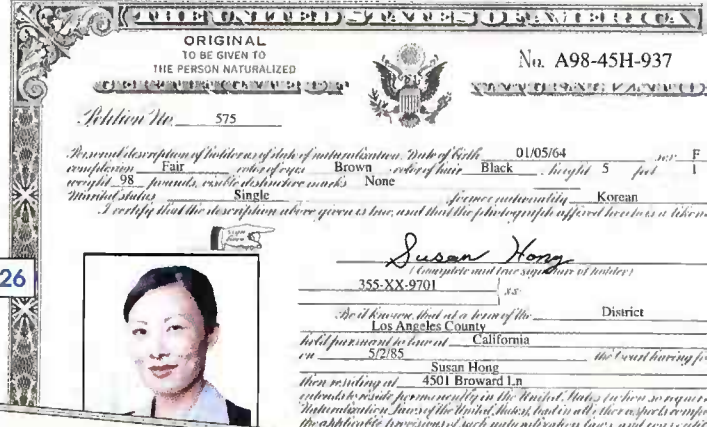 THE UNITED STATES OF AMERICA
ORIGINAL
TO BE GIVEN TO
THE PERSON NATURALIZED
No. A98-45H-937
CERTIFICATE OF NATURALIZATION
Petition No. 575
Personal description of holder as of date of naturalization: Date of birth 01/05/64 sex F
complexion Fair color of eyes Brown color of hair Black height 5 feet 1
weight 98 pounds, visible distinctive marks None
Marital status Single former nationality Korean
I certify that the description above given is true, and that the photograph affixed hereto is a
Sign here
Susan Hong
(Complete and true signature of holder)
355-XX-9701 s.s.
26
Be it known, that at a term of the District
Los Angeles County
held pursuant to law at California
on 5/2/85 the Court having
Susan Hong
then residing at 4501 Broward Ln
intends to reside permanently in the United States
Naturalization Laws of the United States, had in all other respects
the applicable provisions of such naturalization laws, and was